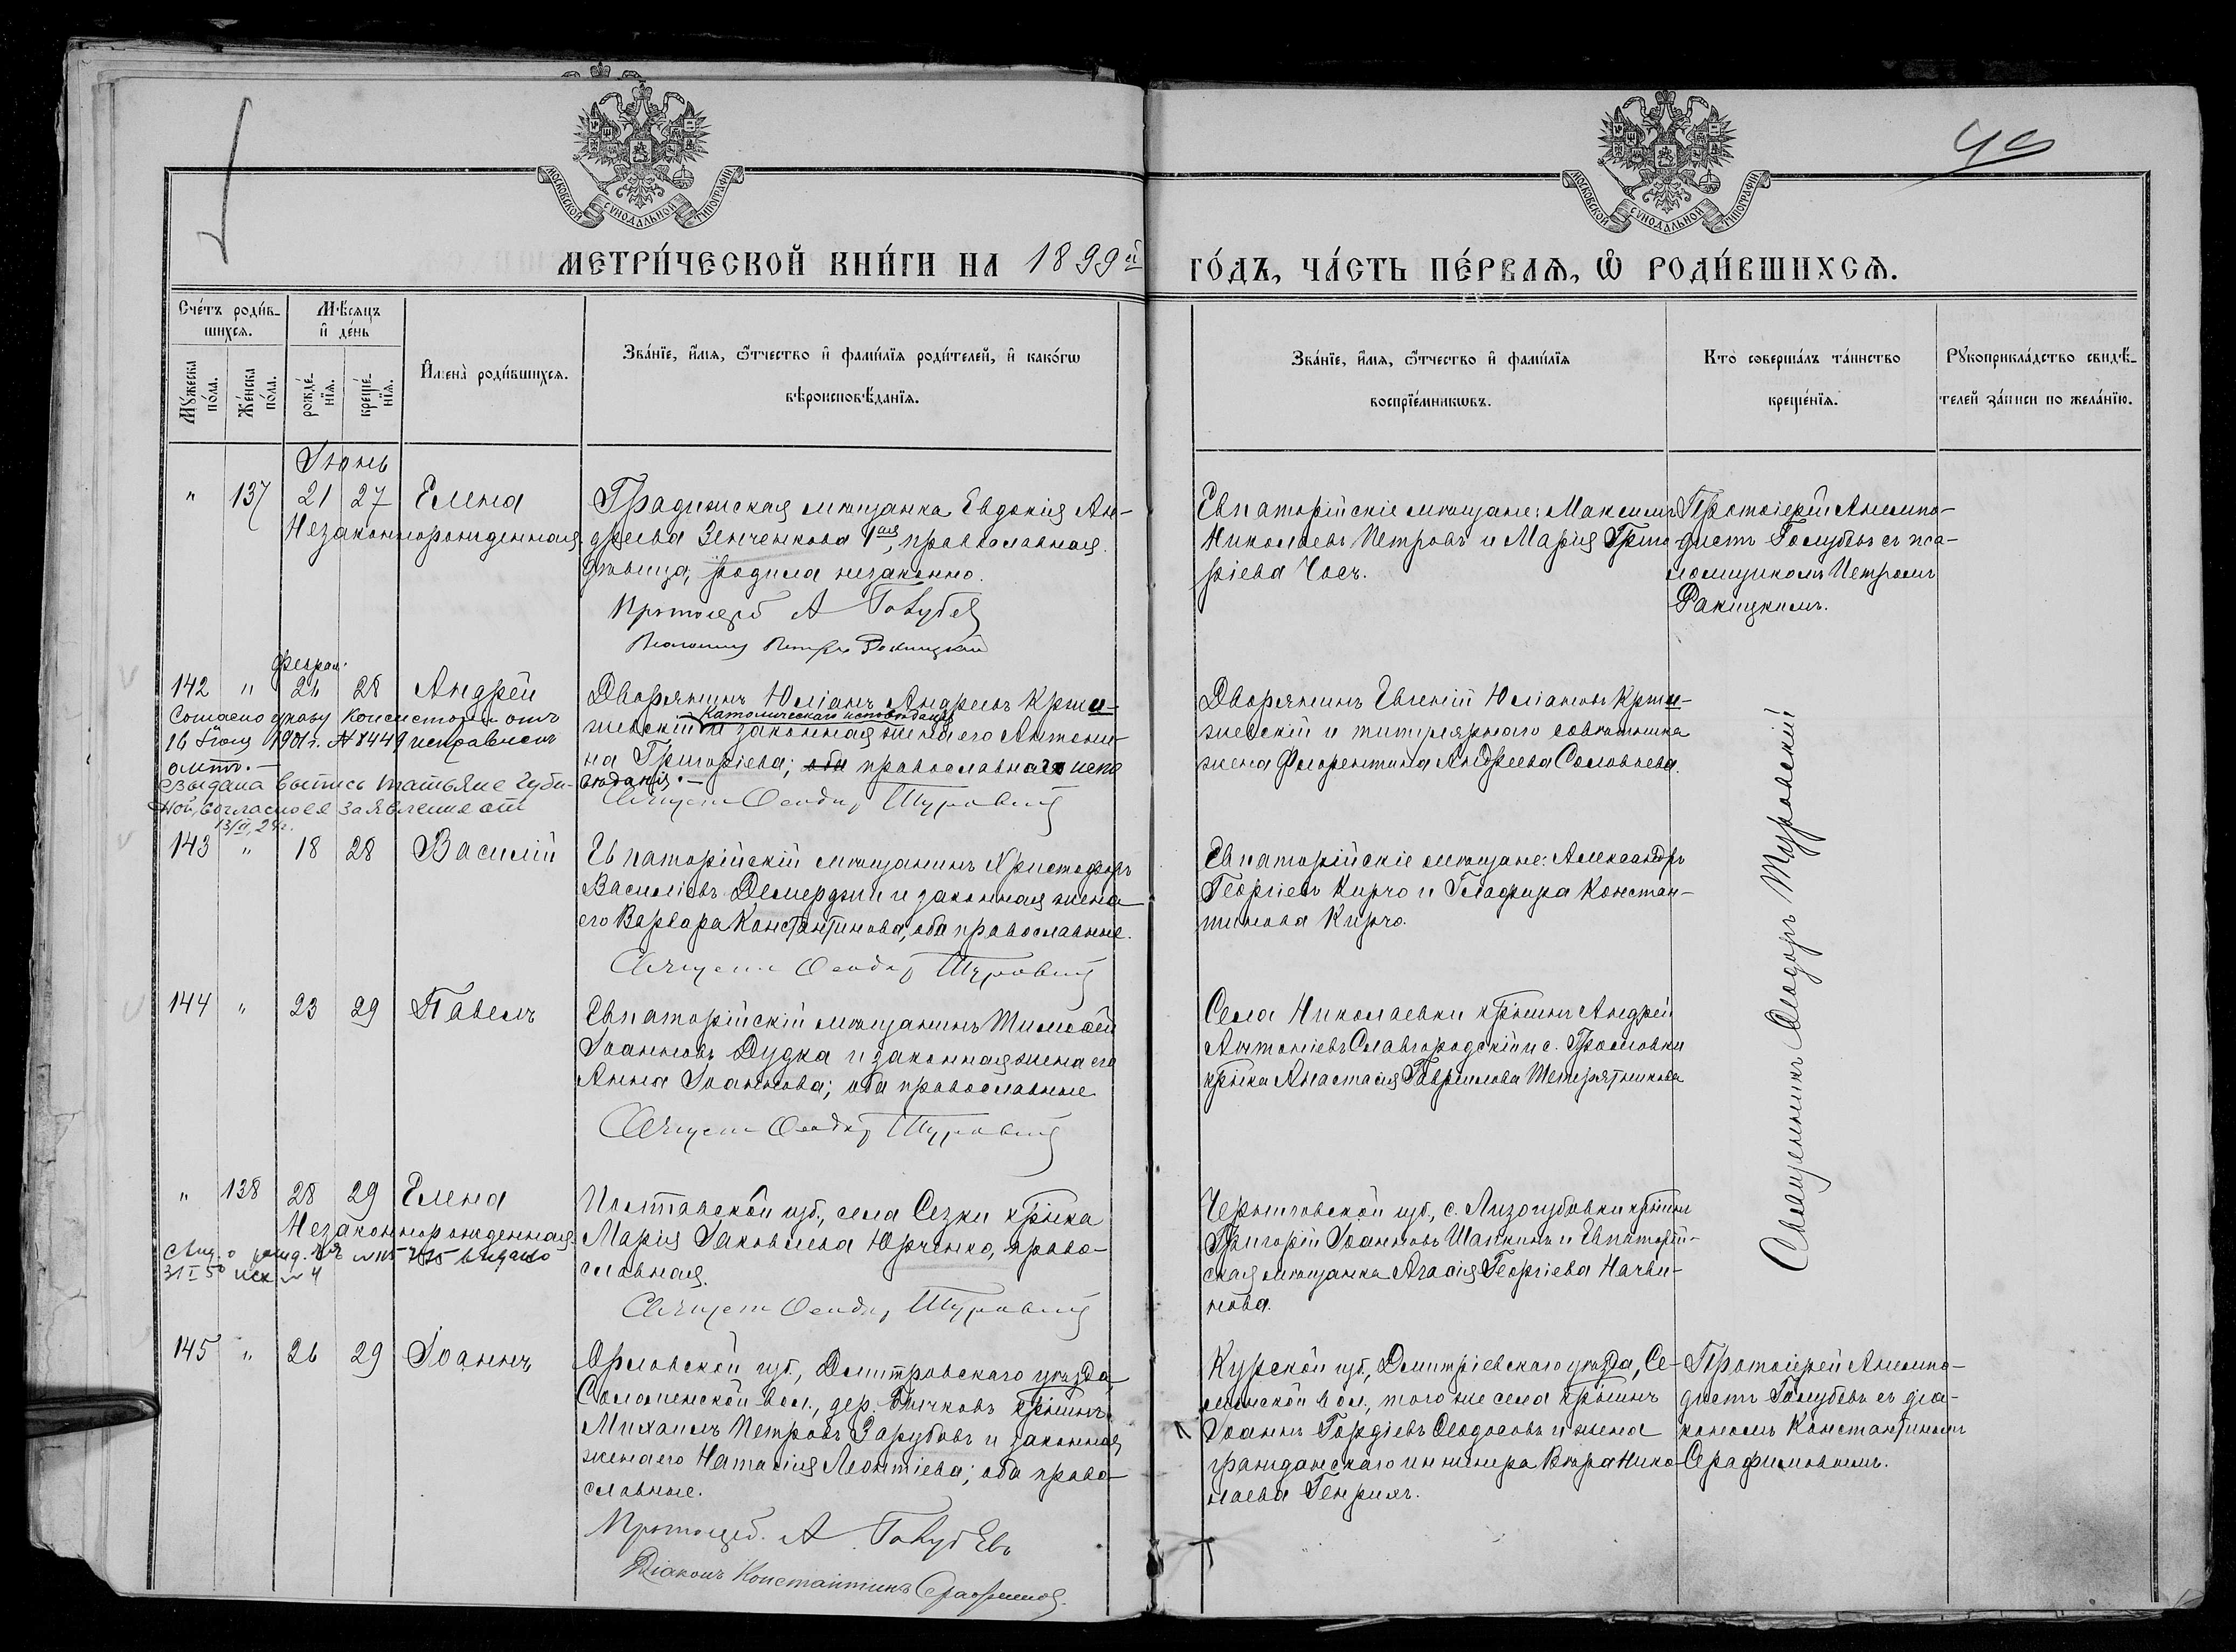 40
МОСКОВСКОЙ СѴНОДАЛЬНОЙ ТИПОГРАФІИ
МОСКОВСКОЙ СѴНОДАЛЬНОЙ ТИПОГРАФІИ
МЕТРИ́ЧЕСКОЙ КНИ́ГИ НА 1899й ГО́ДЪ, ЧА́СТЬ ПЕ́РВАѦ, Ѡ҆ РОДИ́ВШИХСѦ.
Сче́тъ роди́в-
шихсѧ.
Мꙋ́жеска
по́ла.
Же́нска
по́ла.
Мѣ́сѧцъ
и҆ де́нь
рожде́-
нїѧ.
креще́-
нїѧ.
И҆мена̀ роди́вшихсѧ.
Зва́нїе, и҆́мѧ, ѻ҆́тчество и҆ фами́лїѧ роди́телей, и҆ како́гѡ
вѣроисповѣ́данїѧ.
Зва́нїе, и҆́мѧ, ѻ҆́тчество и҆ фами́лїѧ
воспрїе́мникѡвъ.
Кто̀ соверша́лъ та́инство
креще́нїѧ.
Рꙋкоприкла́дство свидѣ́-
телей за́писи по жела́нїю.
Іюнь
" 137 21 27 Елена
Незаконнорожденная
Градижская мѣщанка Евдокія Ан-
дреева Зенченкова 1ая, православная
дѣвица, родила незаконно.
Протоіерей А Голубев
Псаломщ Петръ Ракицкій
Евпаторійскіе мѣщане: Максимъ
Николаевъ Петровъ и Марія Григо-
ріева Чоеч.
Протоіерей Анемпо-
дистъ Голубевъ съ пса-
ломщикомъ Петромъ
Ракицкимъ.
феврал.
142 " 26 28 Андрей
Согласно указу Консисторіи отъ
16 1901г. № 8449 исправленъ
актъ. —
Выдана выпись Татьяне Губи-
ной, согласно ея заявления от
13/II, 24г.
Дворянинъ Юліанъ Андреевъ Кржи-
жевскій католическаго исповѣданія и законная жена его Антони-
на Григоріева; оба православнаго испо
вѣданія. —
Священ Ѳеодор Туровскій
Дворянинъ Евгеній Юліановъ Кржи-
жевскій и титулярнаго совѣтника
жена Флорентина Андреева Соловьева.
143 " 18 28 Василій
Евпаторійскій мѣщанинъ Христофоръ
Василіевъ Демерджи и законная жена
его Варвара Константинова, оба православные.
Священ Ѳеодор Туровскій
Евпаторійскіе мѣщане: Александръ
Георгіевъ Кирчо и Глафира Констан-
тинова Кирчо.
144 " 23 29 Павелъ
Евпаторійскій мѣщанинъ Тимофей
Іоанновъ Дудка и законная жена его
Анна Іоаннова; оба православные
Священ Ѳеодор Туровскій
Села Николаевки кр̃нинъ Андрей
Антоніевъ Славгородскій и с.
кр̃нка Анастасія Гавріилова Тетерятникова
" 138 28 29 Елена
Незаконнорожденная.
выдано
31 I 50 № 4
Полтавской губ., села Сезки кр̃нка
Марія Іаковлева Юрченко, право-
славная.
Священ Ѳеодор Туровскій
Черниговской губ., с. Лизогубовки кр̃нинъ
Григорій Іоанновъ Шапкинъ и Евпаторій-
ская мѣщанка Агасія Георгіева Начви-
нова.
Священникъ Ѳеодоръ Туровскій
145 " 26 29 Іоаннъ
Орловской губ., Дмитровскаго уѣзда,
Соломенской вол., дер. Бычковъ кр̃нинъ
Михаилъ Петровъ Зарубовъ и законная
жена его Наталія Леонтіева; оба право-
славные.
Протоіерей. А. Голубевъ
Діаконъ Константинъ Серафимовъ.
Курской губ., Дмитріевскаго уѣзда, Се-
линской вол., того же села кр̃нинъ
Іоаннъ Гордіевъ Ѳеодосовъ и жена
гражданскаго инженера Вѣра Нико-
лаева Генрихъ.
Протоіерей Анемпо-
дистъ Голубевъ съ діа-
кономъ Константиномъ
Серафимовымъ.